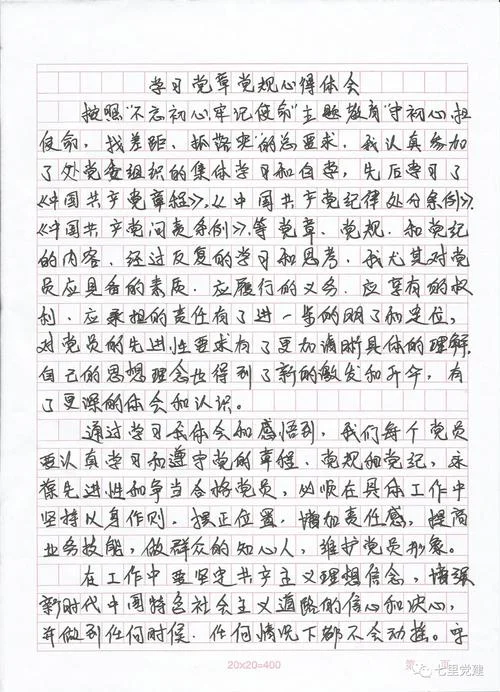 学习党章党规心得体会
按照"不忘初心、牢记使命"主题教育"守初心、担
使命，找差距、抓落实"的总要求，我认真参加
了处党委组织的集体学习和自学，先后学习了
《中国共产党章程》，《中国共产党纪律处分条例》，
《中国共产党问责条例》，等党章、党规、和党纪
的内容、经过反复的学习和思考，我尤其对党
员应具备的素质、应履行的义务、应享有的权
利、应承担的责任有了进一步的明了和定位，
对党员的先进性要求有了更加清晰具体的理解，
自己的思想理念也得到了新的激发和升华，有
了更深的体会和认识。
通过学习我体会和感悟到，我们每个党员
要认真学习和遵守党的章程、党规和党纪，永
葆先进性和争当合格党员，必须在具体工作中
坚持以身作则、摆正位置、增加责任感，提高
业务技能，做群众的知心人，维护党员形象。
在工作中要坚定共产主义理想信念，增强
新时代中国特色社会主义道路的信心和决心，
并做到任何时候、任何情况下都不会动摇。
20×20=400
第 页
七里党建